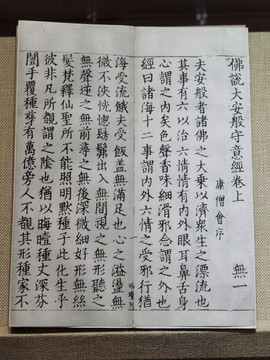 佛說大安般守意經卷上 無一
康僧會序
夫安般者諸佛之大乘以濟衆生之漂流也
其事有六以治六情情有内外眼耳鼻舌身
心謂之内矣色聲香味細滑邪念謂之外也
經曰諸海十二事謂内外六情之受邪行猶
海受流餓夫受飯蓋無滿足也心之溢盪無
微不浹恍惚髣髴出入無間視之無形聽之
無聲逆之無前尋之無後深微細妙形無絲
髮梵釋仙聖所不能照明黙種子此化生乎
彼非凡所覩謂之陰也猶以晦曀種夫深芬
闓手覆種孳有萬億旁人不覩其形種家不